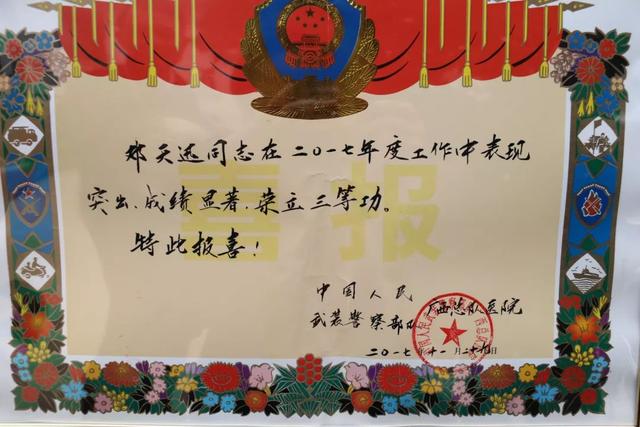 喜报
邓天同志在二〇一七年度工作中表现
突出、成绩显著,荣立三等功。
特此报喜!
中国人民
武装警察部队广西总队医院
二〇一七年十一月二十九日